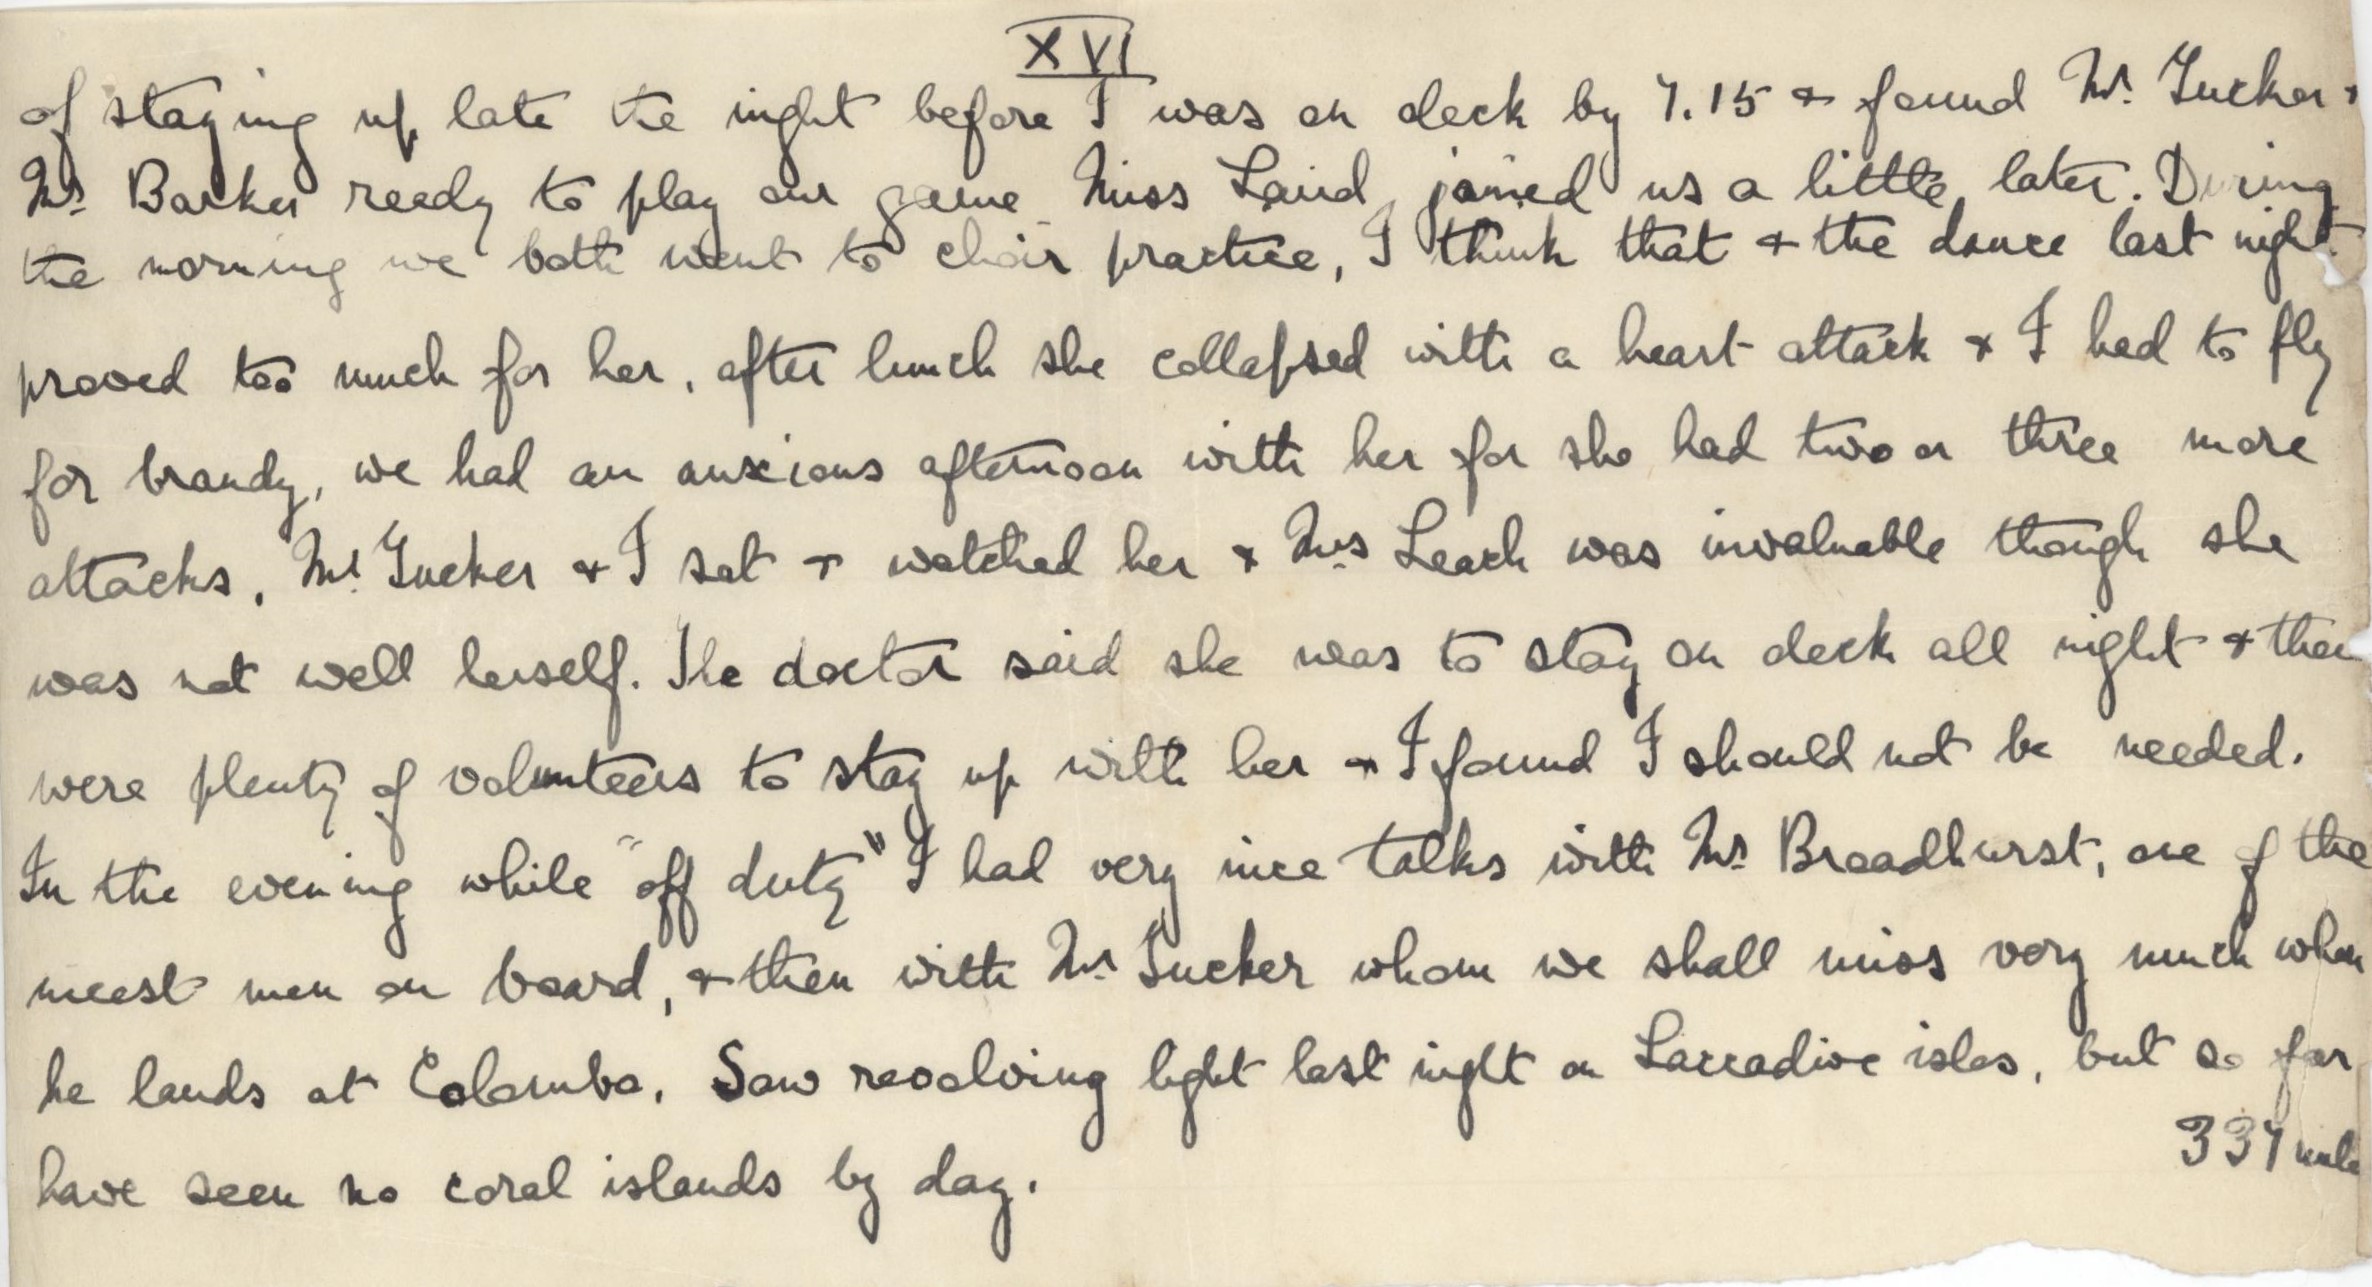 XVI
of staying up late the night before I was on deck by 7.15 & found Mr. Tucker &
Mr. Barker ready to play our game. Miss Laird joined us a little later. During
the morning we both went to choir practice, I think that & the dance last night
proved too much for her, after lunch she collapsed with a heart attack & I had to fly
for brandy, we had an anxious afternoon with her for she had two or three more
attacks, Mr. Tucker & I sat & watched her & Mrs Leach was invaluable though she
was not well herself. The doctor said she was to stay on deck all night & there
were plenty of volunteers to stay up with her & I found I should not be needed.
In the evening while "off duty" I had very nice talks with Mr. Broadhurst, one of the
nicest men on board, & then with Mr. Tucker whom we shall miss very much when
he lands at Colombo. Saw revolving light last night on Laccadive isles, but so far
337 mile
have seen no coral islands by day.